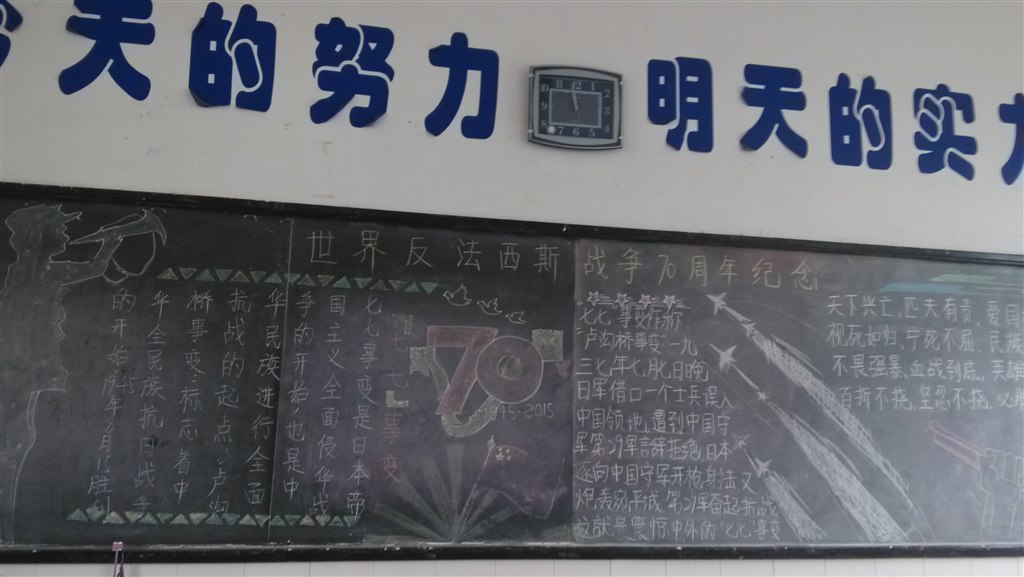 今天的努力 明天的实力
世界反法西斯战争70周年纪念
七七事变是日本帝
国主义全面侵华战
争的开始,也是中
华民族进行全面
抗战的起点,卢沟
桥事变标志着中
华全民族抗日战争
的开始
七七事变
70
1945-2015
七七事变
"卢沟桥事变"一九
三七年七月七日晚
日军借口一个士兵误入
中国领地,遭到中国守
军第29军言辞拒绝,日本
遂向中国守军开枪射击又
炮轰宛平城,第29军奋起抗战
这就是震惊中外的"七七"事变
天下兴亡,匹夫有责,爱国
视死如归,宁死不屈,民族
不畏强暴,血战到底,英雄
百折不挠,坚忍不拔,必